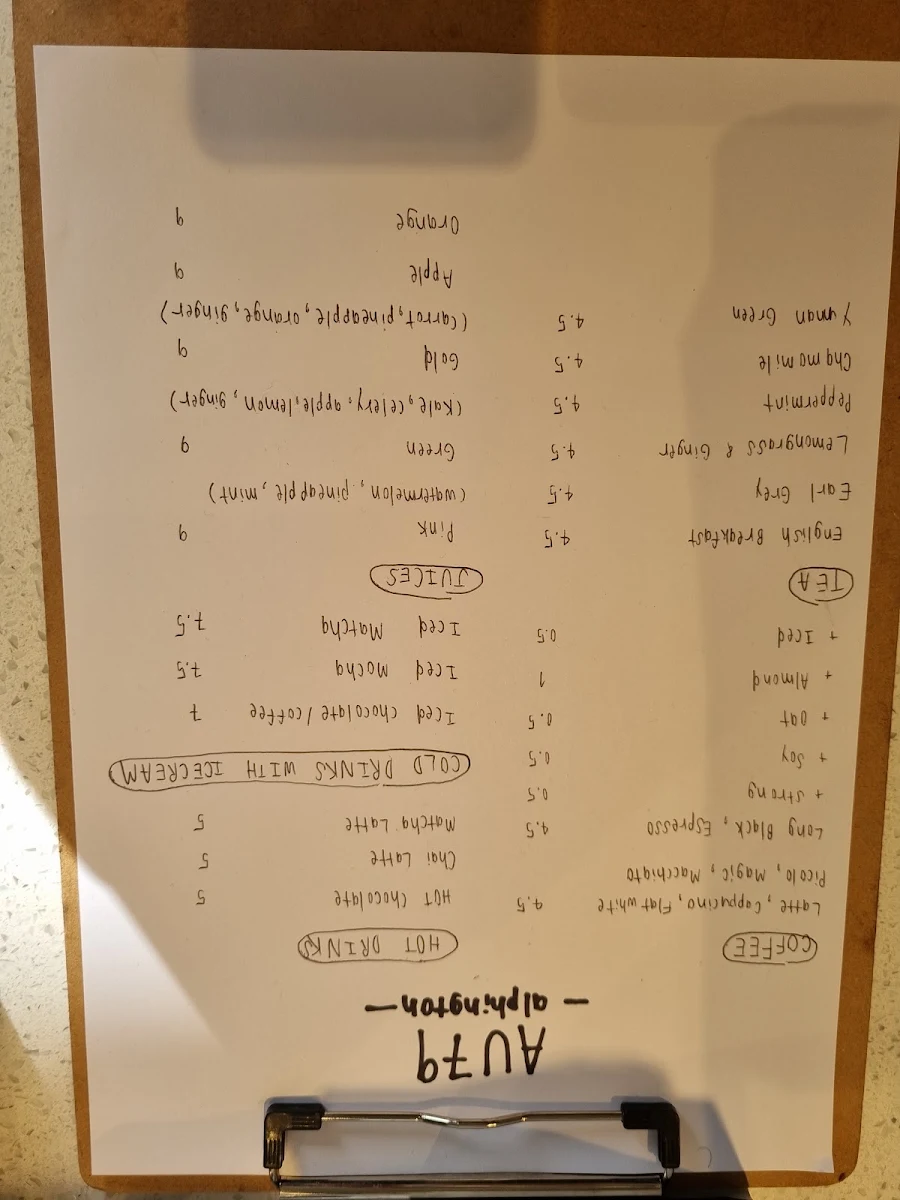 AU79
— alphington —
COFFEE
Latte, Cappucino, Flatwhite 4.5
Piccolo, Magic, Macchiato
Long Black, Espresso 4.5
+ Strong 0.5
+ Soy 0.5
+ Oat 0.5
+ Almond 1
+ Iced 0.5
TEA
English Breakfast 4.5
Earl Grey 4.5
Lemongrass & Ginger 4.5
Peppermint 4.5
Chamomile 4.5
Yunan Green 4.5
HOT DRINKS
HOT chocolate 5
Chai Latte 5
Matcha Latte 5
COLD DRINKS WITH ICECREAM
Iced chocolate/coffee 7
Iced Mocha 7.5
Iced Matcha 7.5
JUICES
Pink 9
(watermelon, pineapple, mint)
Green 9
(kale, celery, apple, lemon, ginger)
Gold 9
(carrot, pineapple, orange, ginger)
Apple 9
Orange 9